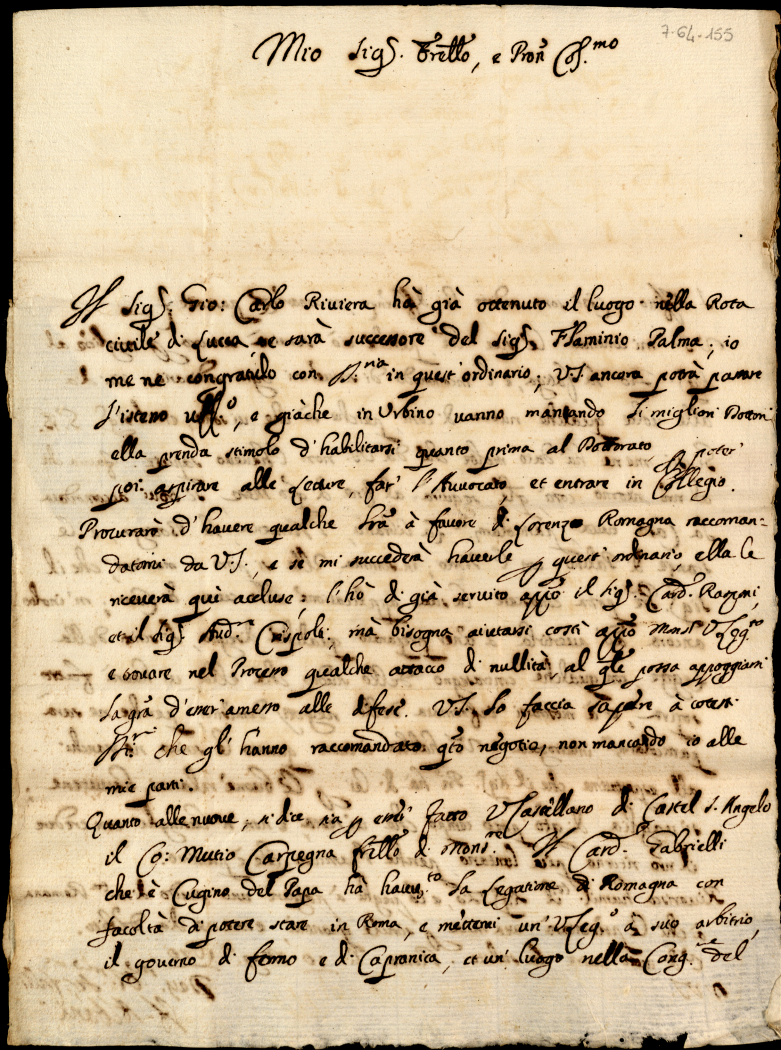 7-64-155
Mio Sig.r Frello, e Pron Col.mo
Il Sig.r Gio: Carlo Riviera hà già ottenuto il luogo nella Rota
civile di Lucca e sarà successore del Sig.r Flaminio Palma; io
me ne congratulo con in quest'ordinario; V.S. ancora potrà passare
l'istesso uff.o, e giàche in Urbino vanno mancando li migliori Dottori
ella prenda stimolo d'habilitarsi quanto prima al Dottorato p poter
poi aspirare alle Letture, far l'Avvocato, et entrare in Collegio.
Procurarò d'havere qualche lra à favore di Lorenzo Romagna raccoman=
datomi da V.S., e se mi succederà haverle p quest'ordinario, ella le
riceverà quì accluse; l'hò di già servito appo il Sig.r Card.
et il Sig.r Aud.r Crispoli; mà bisogna aiutarsi costì appo Mons.r VLeg.to
e trovare nel Processo qualche attacco di nullità, al qle possa appoggiarsi
la gra d'esser amesso alle difese. V.S. lo faccia sapere à cotesti
che gl'hanno raccomandato qto negotio, non mancando io alle
mie parti.
Quanto alle nuove, si dice, sia p esser fatto VCastellano di Castel S. Angelo
il Co: Mutio Carpegna frello di Mons.re Il Card. Gabrielli
che è Cugino del Papa hà havuto la Legatione di Romagna con
facoltà di potere stare in Roma, e mettervi un'VLeg.o à suo arbitrio,
il governo di fermo e di Capranica, et un'luogo nella Cong.e del